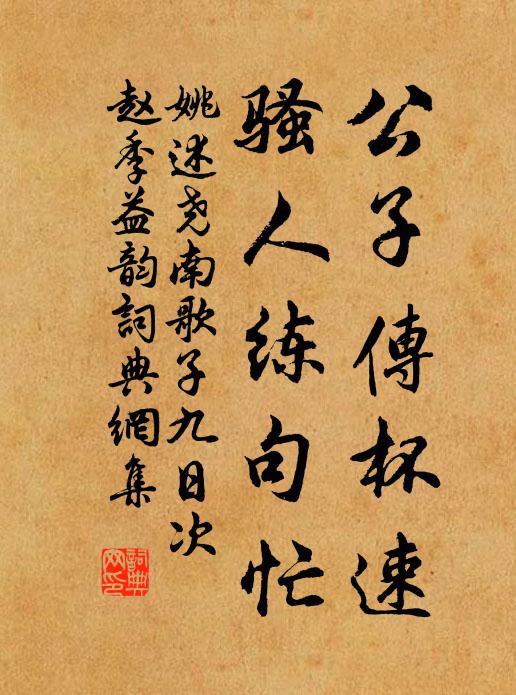 公子傳杯速
骚人练句忙
姚述尧南歌子九日次
赵季益韵词典網集
詞典網印